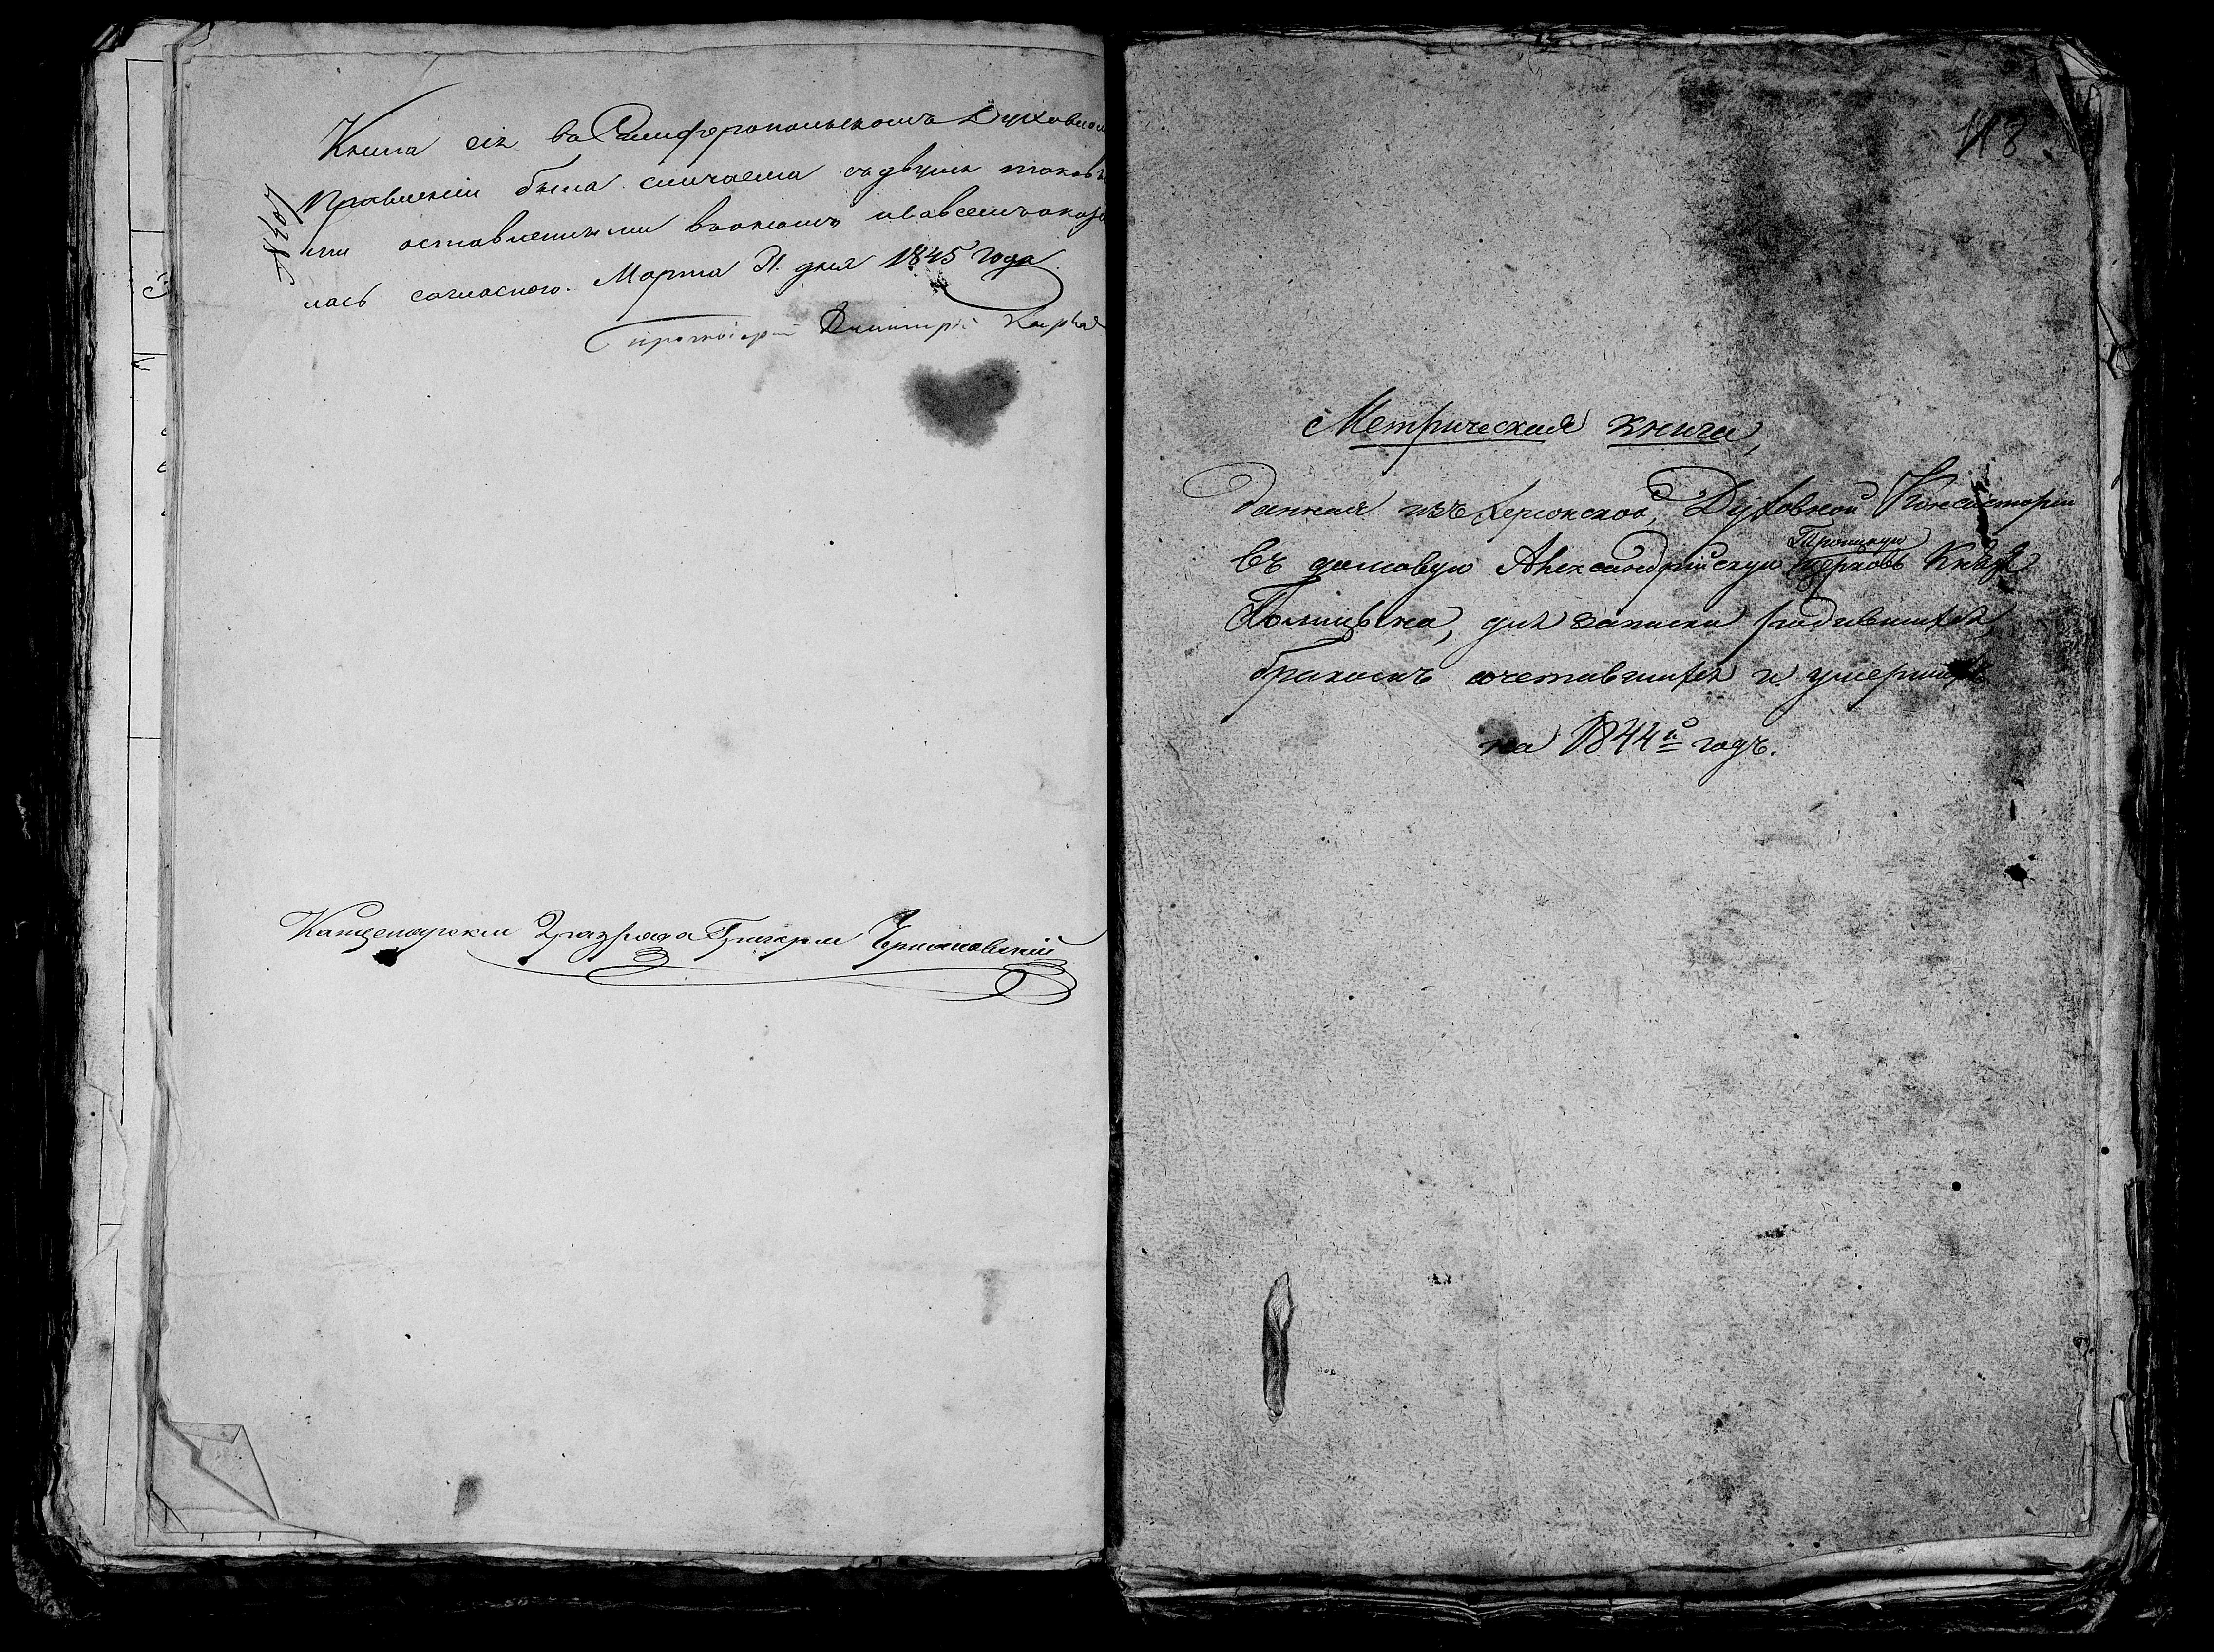 Книга сія въ Симферопольскомъ Духовном
Правленіи была сличаема съ двумя таковы
ми оставленными въ ономъ и во всемъ оказа
лась согласною. Марта 31. дня 1845 года
Протоіерей Димитрій
Канцеляристъ 2 разряда Григорій
118
Метрическая книга,
данная изъ Херсонской Духовной Консисторіи
въ домовую Александрійскую Троицкую Церковь Князя
Голицына, для записки родившихся,
бракомъ сочетавшихся и умершихъ
на 1844й годъ.